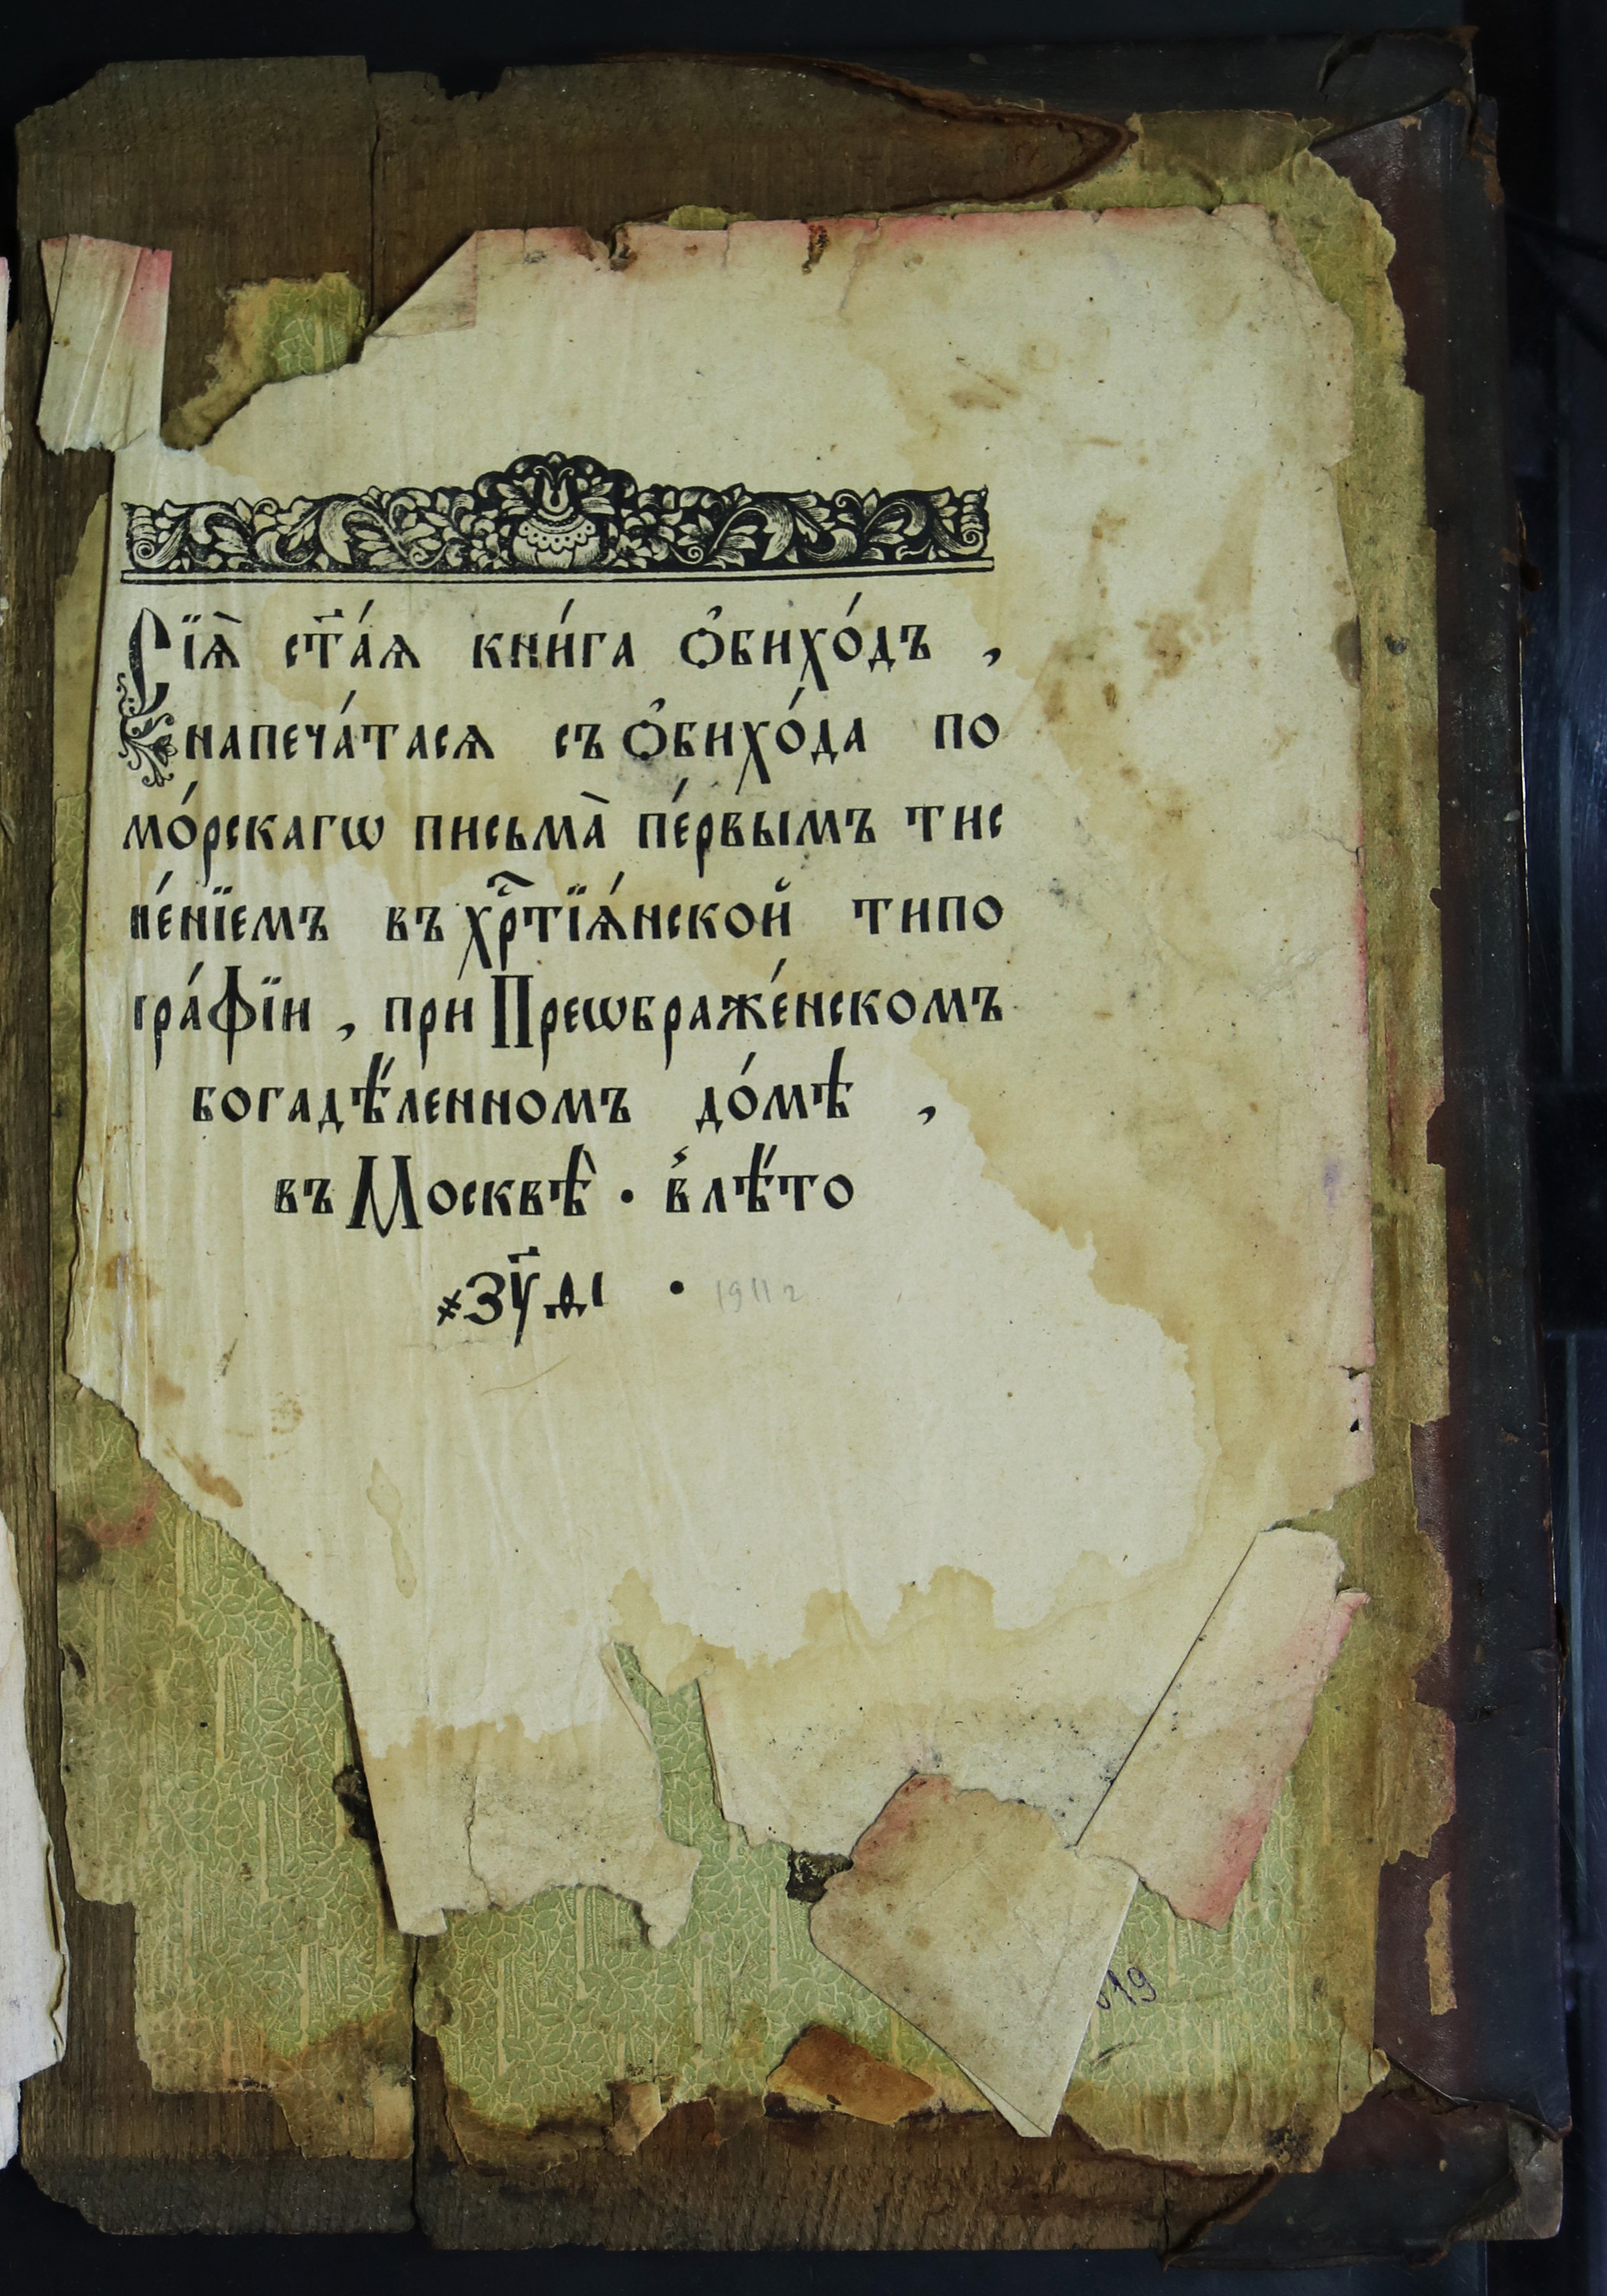 Сїѧ̀ ст҃а́ѧ кни́га ѻ҆бихо́дъ ,
напеча́тасѧ съ ѻ҆бихо́да по
мо́рскагѡ письма̀ пе́рвымъ тис
не́нїемъ въ хрⷭ҇тїѧ́нской типо
гра́фїи , при Преѡбраже́нскомъ
богадѣ́ленномъ до́мѣ ,
въ Москвѣ̀. в̾лѣ́то
҂зу҃ді . 1911 г
019